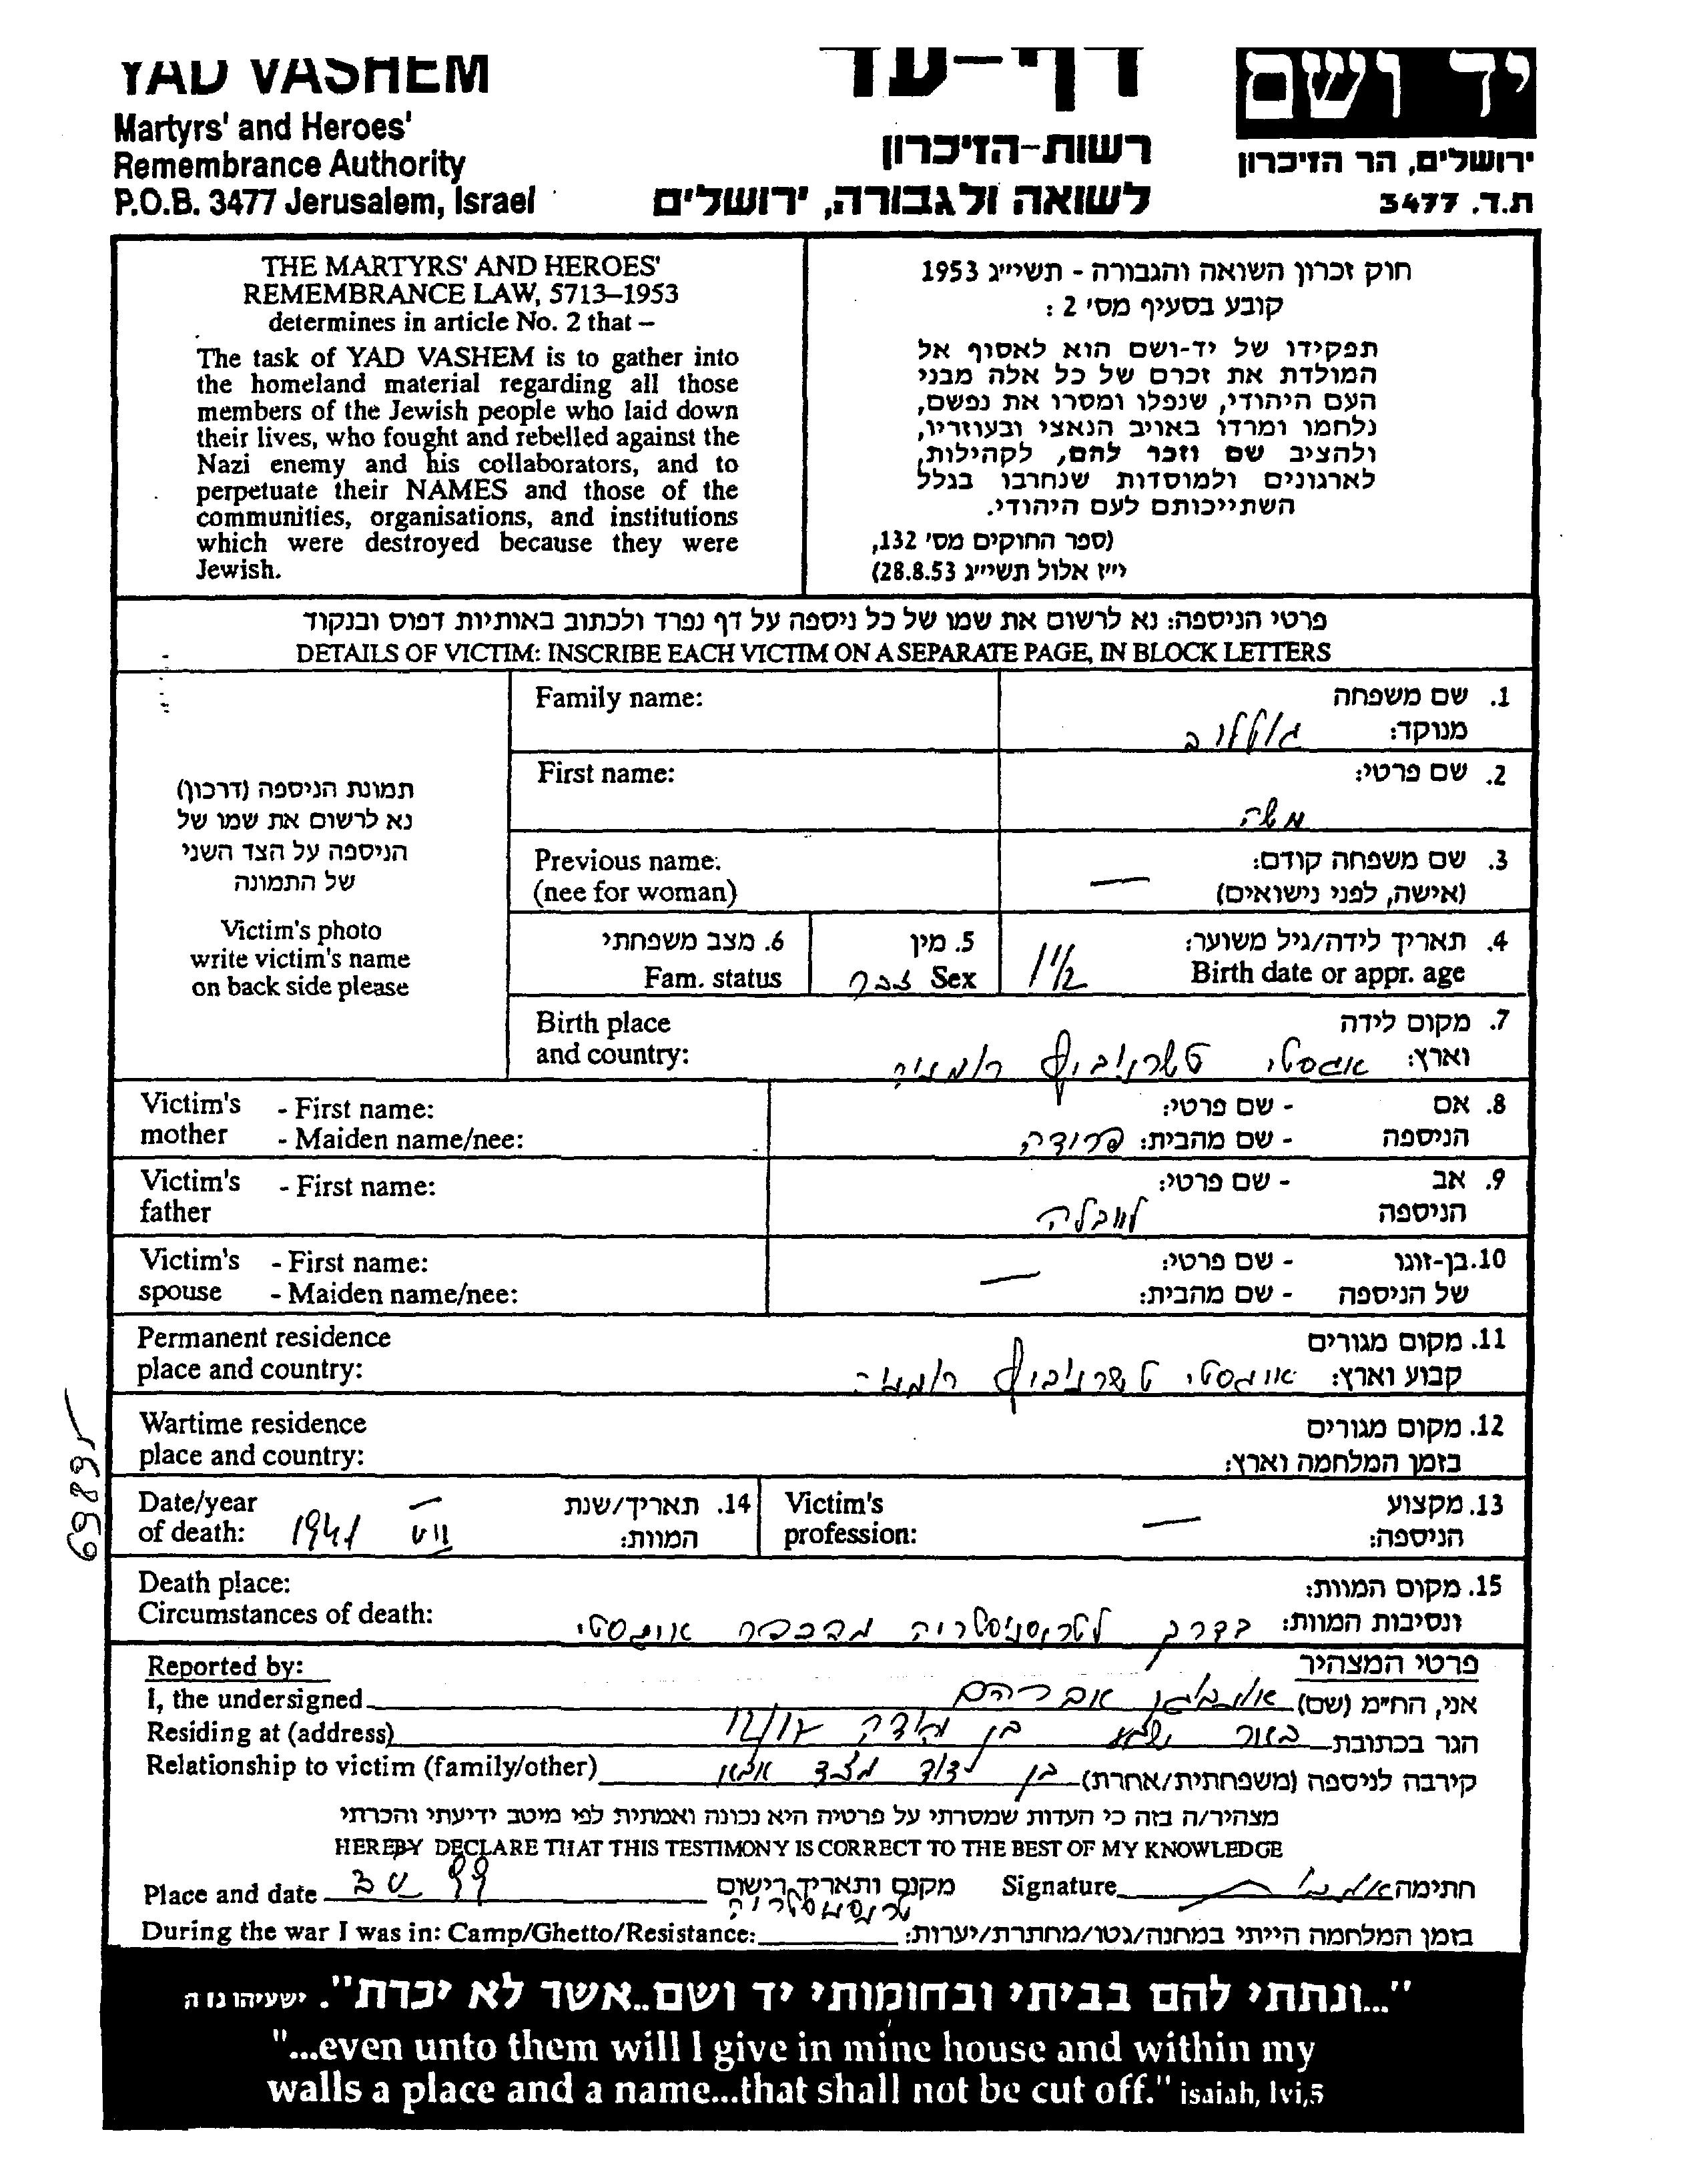 YAD VASHEM
Martyrs' and Heroes'
Remembrance Authority
P.O.B. 3477 Jerusalem, Israel
דף-עד
רשות-הזיכרון
לשואה ולגבורה, ירושלים
יד ושם
ירושלים, הר הזיכרון
ת.ד. 3477
THE MARTYRS' AND HEROES'
REMEMBRANCE LAW, 5713–1953
determines in article No. 2 that –
The task of YAD VASHEM is to gather into
the homeland material regarding all those
members of the Jewish people who laid down
their lives, who fought and rebelled against the
Nazi enemy and his collaborators, and to
perpetuate their NAMES and those of the
communities, organisations, and institutions
which were destroyed because they were
Jewish.
חוק זכרון השואה והגבורה - תשי״ג 1953
קובע בסעיף מס׳ 2 :
תפקידו של יד-ושם הוא לאסוף אל
המולדת את זכרם של כל אלה מבני
העם היהודי, שנפלו ומסרו את נפשם,
נלחמו ומרדו באויב הנאצי ובעוזריו,
ולהציב שם וזכר להם, לקהילות,
לארגונים ולמוסדות שנחרבו בגלל
השתייכותם לעם היהודי.
(ספר החוקים מס׳ 132,
י״ז אלול תשי״ג 28.8.53)
פרטי הניספה: נא לרשום את שמו של כל ניספה על דף נפרד ולכתוב באותיות דפוס ובנקוד
DETAILS OF VICTIM: INSCRIBE EACH VICTIM ON A SEPARATE PAGE, IN BLOCK LETTERS
תמונת הניספה (דרכון)
נא לרשום את שמו של
הניספה על הצד השני
של התמונה
Victim's photo
write victim's name
on back side please
Family name:
1. שם משפחה
מנוקד:
First name:
2. שם פרטי:
משה
Previous name:
(nee for woman)
3. שם משפחה קודם: —
(אישה, לפני נישואים)
4. תאריך לידה/גיל משוער:
Birth date or appr. age 1 1/2
5. מין
Sex זכר
6. מצב משפחתי
Fam. status
Birth place
and country:
7. מקום לידה
וארץ: אוגסטי טשרנוביץ רומניה
Victim's - First name:
mother - Maiden name/nee:
8. אם - שם פרטי:
הניספה - שם מהבית: פרודה
Victim's - First name:
father
9. אב - שם פרטי:
הניספה
Victim's - First name:
spouse - Maiden name/nee:
10. בן-זוגו - שם פרטי: —
של הניספה - שם מהבית:
Permanent residence
place and country:
11. מקום מגורים
קבוע וארץ: אוגוסטי טשרנוביץ רומניה
Wartime residence
place and country:
12. מקום מגורים
בזמן המלחמה וארץ:
Date/year
of death: 1941 VII
14. תאריך/שנת
המוות:
Victim's
profession: —
13. מקצוע
הניספה:
Death place:
Circumstances of death:
15. מקום המוות:
ונסיבות המוות: בדרך לטרנסניסטריה מהכפר אוגוסטי
69893
Reported by:
פרטי המצהיר
I, the undersigned אברהם אני, הח״מ (שם)
Residing at (address) באר שבע בן יהודה הגר בכתובת
Relationship to victim (family/other) בן דוד מצד אבא קירבה לניספה (משפחתית/אחרת)
מצהיר/ה בזה כי העדות שמסרתי על פרטיה היא נכונה ואמתית לפי מיטב ידיעתי והכרתי
HEREBY DECLARE THAT THIS TESTIMONY IS CORRECT TO THE BEST OF MY KNOWLEDGE
Place and date 99 מקום ותאריך רישום Signature חתימה
טרנסניסטריה
During the war I was in: Camp/Ghetto/Resistance: בזמן המלחמה הייתי במחנה/גטו/מחתרת/יערות:
"...ונתתי להם בביתי ובחומותי יד ושם..אשר לא יכרת". ישעיהו נו ה
"...even unto them will I give in mine house and within my
walls a place and a name...that shall not be cut off." isaiah, lvi,5